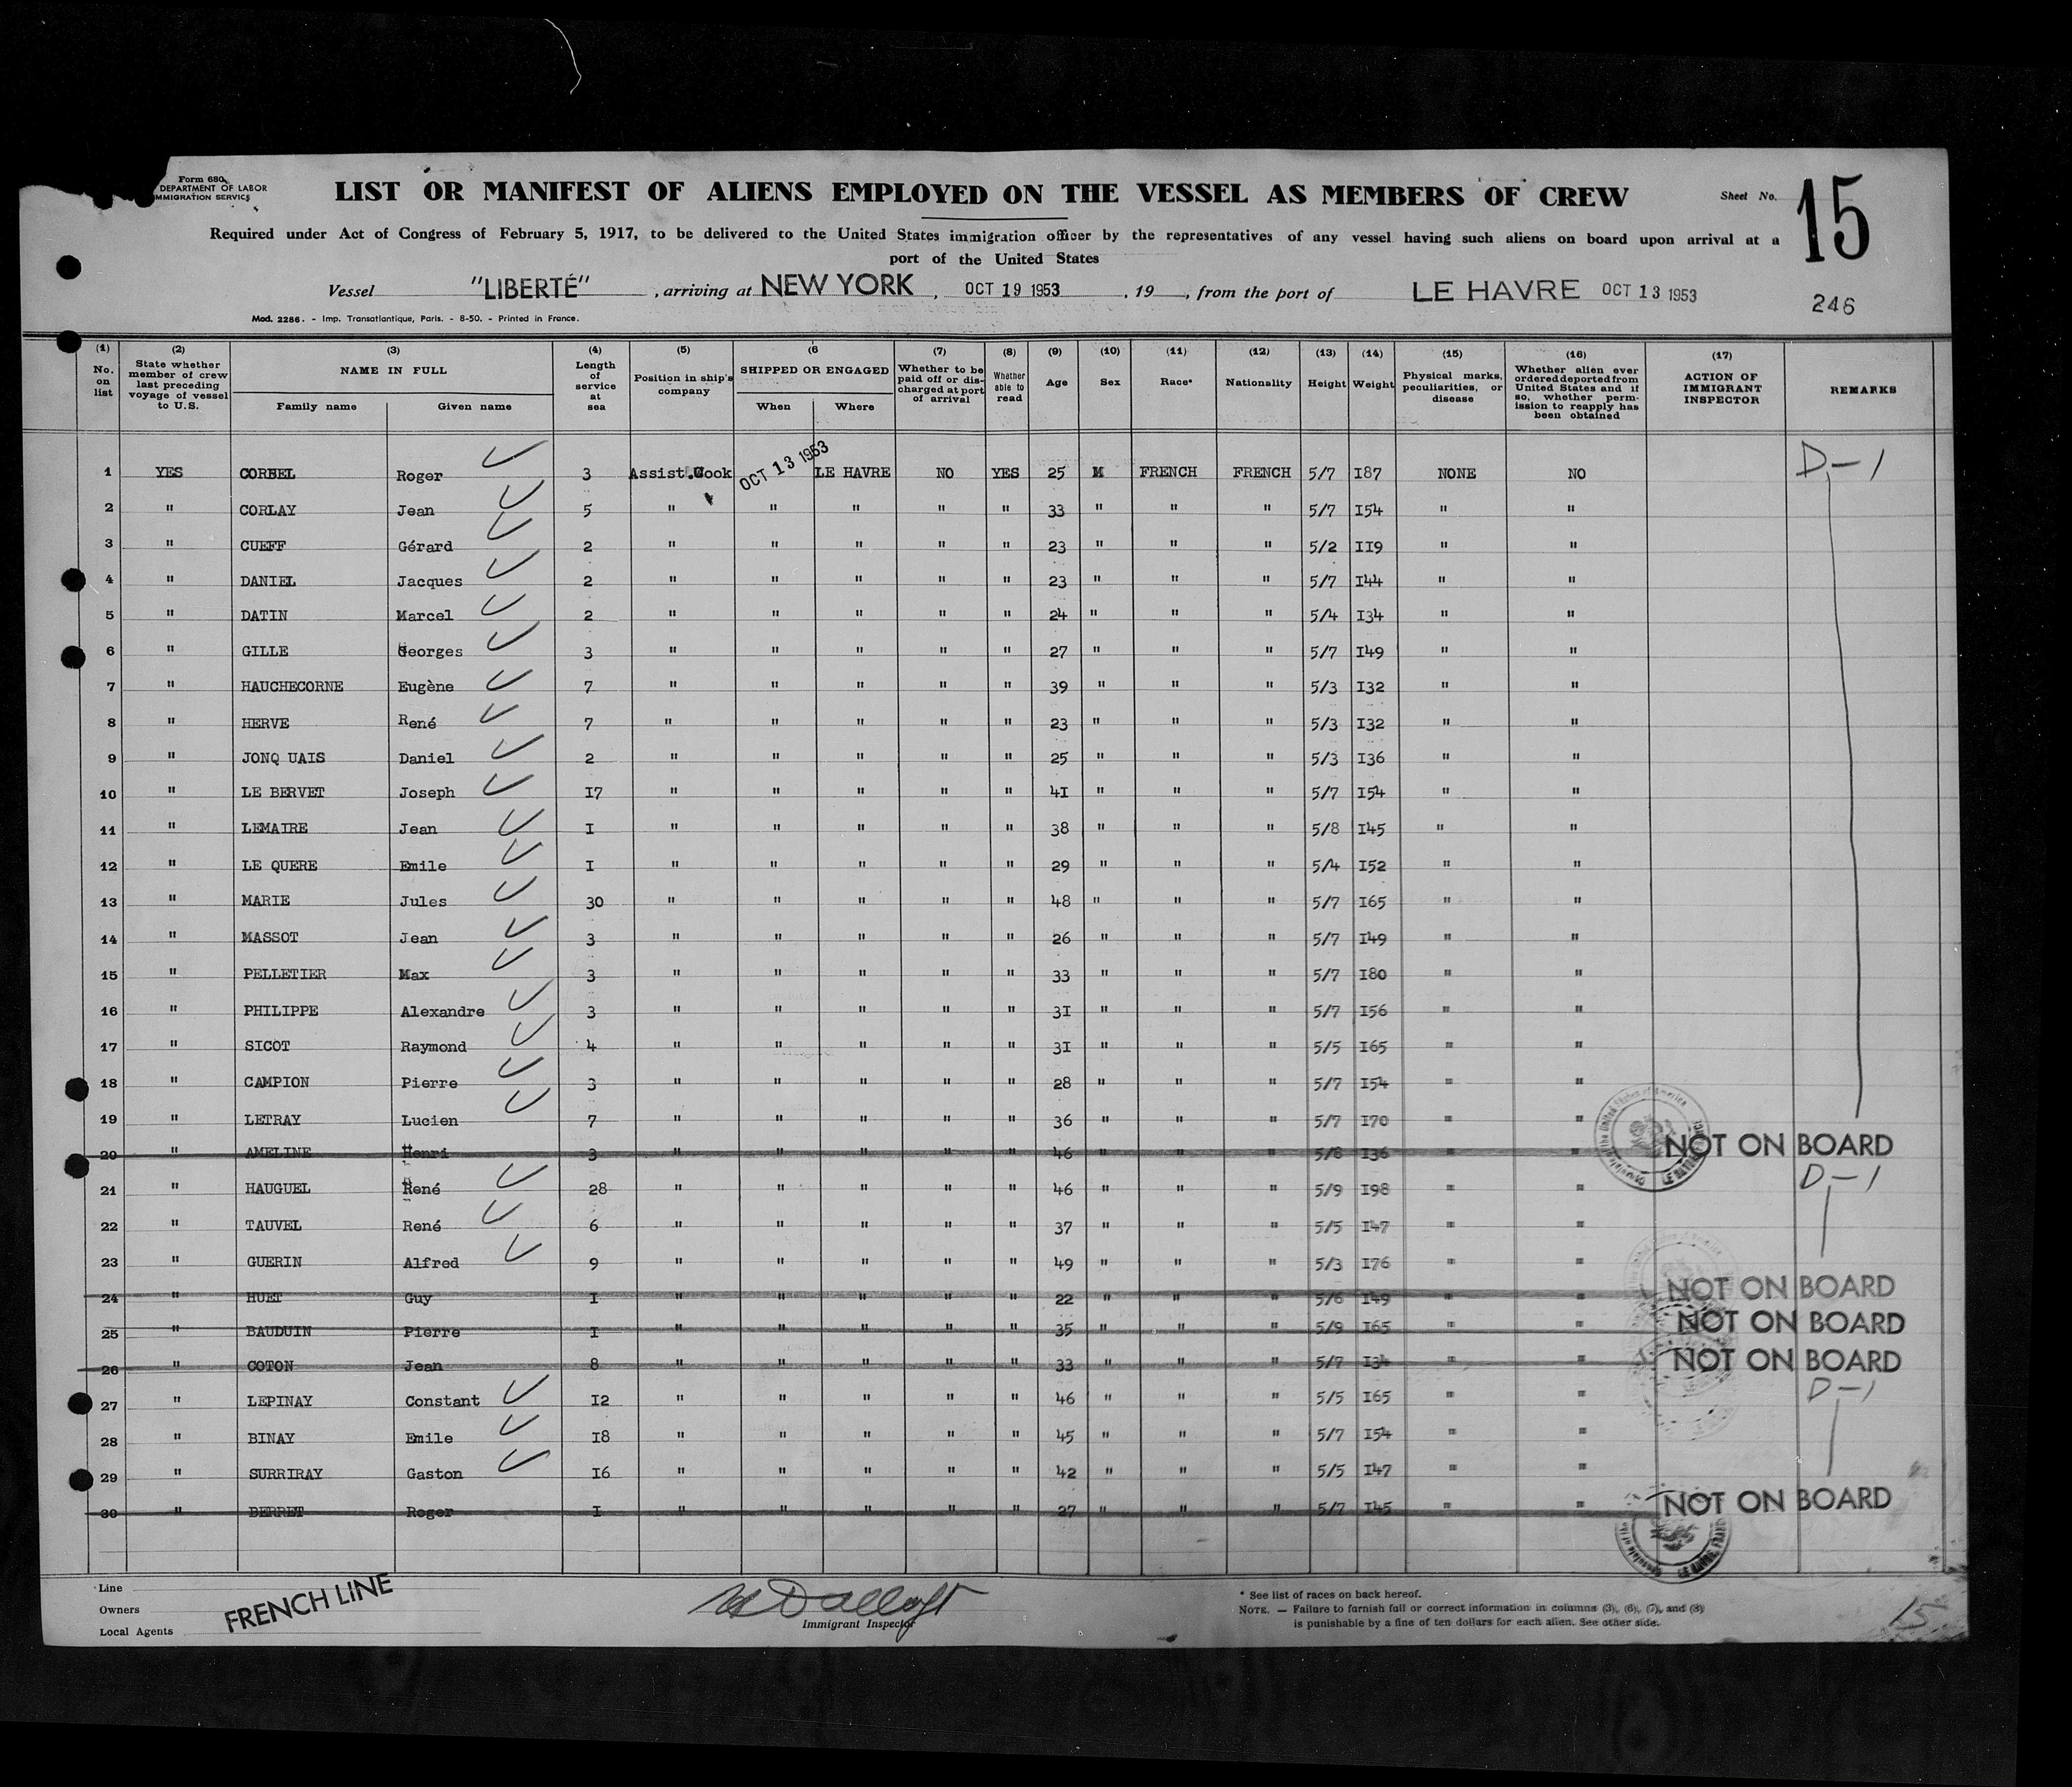 Form 680
DEPARTMENT OF LABOR
IMMIGRATION SERVICE
LIST OR MANIFEST OF ALIENS EMPLOYED ON THE VESSEL AS MEMBERS OF CREW
Sheet No. 15
Required under Act of Congress of February 5, 1917, to be delivered to the United States immigration officer by the representatives of any vessel having such aliens on board upon arrival at a
port of the United States
Vessel "LIBERTÉ", arriving at NEW YORK, OCT 19 1953, 19, from the port of LE HAVRE OCT 13 1953
246
Mod. 2286. - Imp. Transatlantique, Paris. - 8-50. - Printed in France.
(1) No. on list (2) State whether member of crew last preceding voyage of vessel to U.S. (3) NAME IN FULL Family name Given name (4) Length of service at sea (5) Position in ship's company (6 SHIPPED OR ENGAGED When Where (7) Whether to be paid off or discharged at port of arrival (8) Whether able to read (9) Age (10) Sex (11) Race* (12) Nationality (13) Height (14) Weight (15) Physical marks, peculiarities, or disease (16) Whether alien ever ordered deported from United States and if so, whether permission to reapply has been obtained (17) ACTION OF IMMIGRANT INSPECTOR REMARKS
1 YES CORBEL Roger 3 Assist.Cook OCT 13 1953 LE HAVRE NO YES 25 M FRENCH FRENCH 5/7 I87 NONE NO D-1
2 " CORLAY Jean 5 " " " " " 33 " " " 5/7 I54 " "
3 " CUEFF Gérard 2 " " " " " 23 " " " 5/2 II9 " "
4 " DANIEL Jacques 2 " " " " " 23 " " " 5/7 I44 " "
5 " DATIN Marcel 2 " " " " " 24 " " " 5/4 I34 " "
6 " GILLE Georges 3 " " " " " 27 " " " 5/7 I49 " "
7 " HAUCHECORNE Eugène 7 " " " " " 39 " " " 5/3 I32 " "
8 " HERVE René 7 " " " " " 23 " " " 5/3 I32 " "
9 " JONQ UAIS Daniel 2 " " " " " 25 " " " 5/3 I36 " "
10 " LE BERVET Joseph I7 " " " " " 4I " " " 5/7 I54 " "
11 " LEMAIRE Jean I " " " " " 38 " " " 5/8 I45 " "
12 " LE QUERE Emile I " " " " " 29 " " " 5/4 I52 " "
13 " MARIE Jules 30 " " " " " 48 " " " 5/7 I65 " "
14 " MASSOT Jean 3 " " " " " 26 " " " 5/7 I49 " "
15 " PELLETIER Max 3 " " " " " 33 " " " 5/7 I80 " "
16 " PHILIPPE Alexandre 3 " " " " " 3I " " " 5/7 I56 " "
17 " SICOT Raymond 4 " " " " " 3I " " " 5/5 I65 " "
18 " CAMPION Pierre 3 " " " " " 28 " " " 5/7 I54 " "
19 " LETRAY Lucien 7 " " " " " 36 " " " 5/7 I70 " "
20 " AMELINE Henri 3 " " " " " 46 " " " 5/8 I36 " " NOT ON BOARD
21 " HAUGUEL René 28 " " " " " 46 " " " 5/9 I98 " " D-1
22 " TAUVEL René 6 " " " " " 37 " " " 5/5 I47 " "
23 " GUERIN Alfred 9 " " " " " 49 " " " 5/3 I76 " "
24 " HUET Guy I " " " " " 22 " " " 5/6 I49 " " NOT ON BOARD
25 " BAUDUIN Pierre I " " " " " 35 " " " 5/9 I65 " " NOT ON BOARD
26 " COTON Jean 8 " " " " " 33 " " " 5/7 I34 " " NOT ON BOARD
27 " LEPINAY Constant I2 " " " " " 46 " " " 5/5 I65 " " D-1
28 " BINAY Emile I8 " " " " " 45 " " " 5/7 I54 " "
29 " SURRIRAY Gaston I6 " " " " " 42 " " " 5/5 I47 " "
30 " BERRET Roger I " " " " " 27 " " " 5/7 I45 " " NOT ON BOARD
Line
Owners FRENCH LINE
Local Agents
Immigrant Inspector
* See list of races on back hereof.
NOTE. — Failure to furnish full or correct information in columns (3), (6), (7), and (8)
is punishable by a fine of ten dollars for each alien. See other side.
15